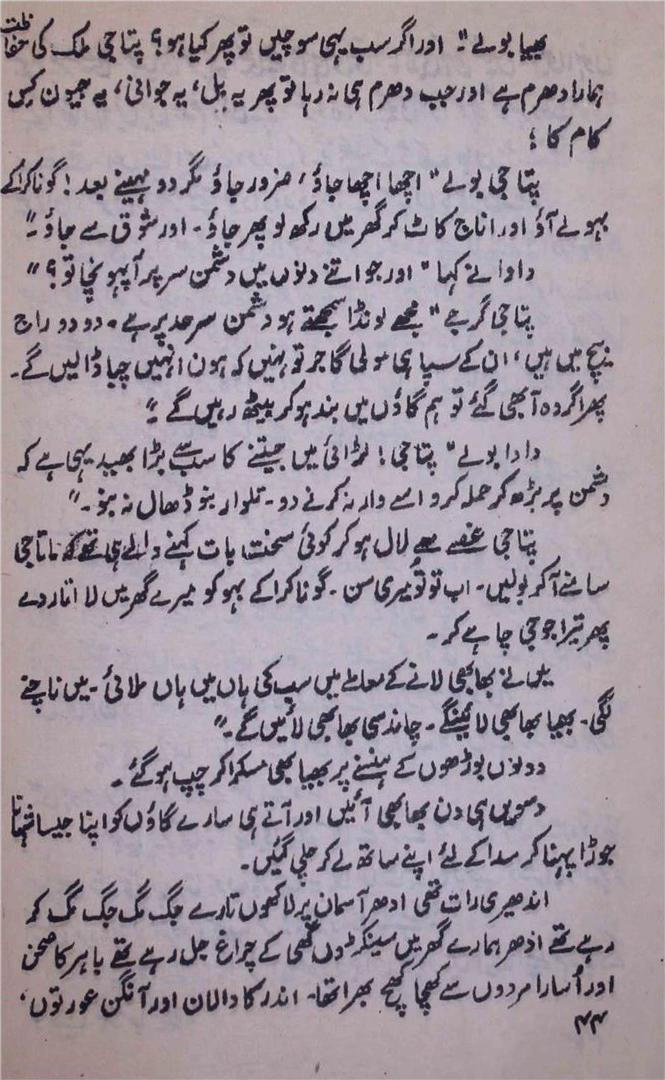 بھیا بولے" اور اگر سب یہی سوچیں تو پھر کیا ہو؟ پتا جی ملک کی حفاظت
ہمارا دھرم ہے اور جب دھرم ہی نہ رہا تو پھر یہ بل، یہ جوانی، یہ جیون کس
کام کا ؛
پتا جی بولے" اچھا اچھا جاؤ، ضرور جاؤ مگر دو مہینے بعد! گونا کرا کے
بہو لے آؤ اور اناج کاٹ کر گھر میں رکھ لو پھر جاؤ۔ اور شوق سے جاؤ۔"
دادا نے کہا" اور جو اتنے دنوں میں دشمن سر پر آ پہونچا تو؟"
پتا جی گرجے" مجھے لونڈا سمجھتے ہو دشمن سرحد پر ہے۔ دو دو راج
بیچ میں ہیں، ان کے سپاہی مولی گاجر تو ہنیں کہ ہون انہیں چبا ڈالیں گے۔
پھر اگر وہ آ بھی گئے تو ہم گاؤں میں بند ہو کر بیٹھ رہیں گے۔"
دادا بولے" پتا جی! لڑائی میں جیتنے کا سب سے بڑا بھید یہی ہے کہ
دشمن پر بڑھ کر حملہ کرو اسے وار نہ کرنے دو۔ تلوار بنو ڈھال نہ بنو۔"
پتا جی غصے سے لال ہو کر کوئی سخت بات کہنے والے ہی تھے کہ ماتا جی
سامنے آ کر بولیں۔ اب تو تُو میری سن۔ گونا کرا کے بہو کو میرے گھر میں لا اتار دے
پھر تیرا جو جی چاہے کر۔
میں نے بھابھی لانے کے معاملے میں سب کی ہاں میں ہاں ملائی۔ میں ناچنے
لگی۔ بھیا بھابھی لائینگے۔ چاند سی بھابھی لائیں گے۔"
دونوں بوڑھوں کے ہنسنے پر بھیا بھی مسکرا کر چپ ہو گئے۔
دسویں ہی دن بھابھی آئیں اور آتے ہی سارے گاؤں کو اپنا جیسا شہانا
جوڑا پہنا کر سدا کے لئے اپنے ساتھ لے کر چلی گئیں۔
اندھیری رات تھی ادھر آسمان پر لاکھوں تارے جگ مگ جگ مگ کر
رہے تھے اِدھر ہمارے گھر میں سینکڑوں گھی کے چراغ جل رہے تھے باہر کا صحن
اور اُسارا مردوں سے کھچا کھچ بھرا تھا۔ اندر کا دالان اور آنگن عورتوں،
۴۴